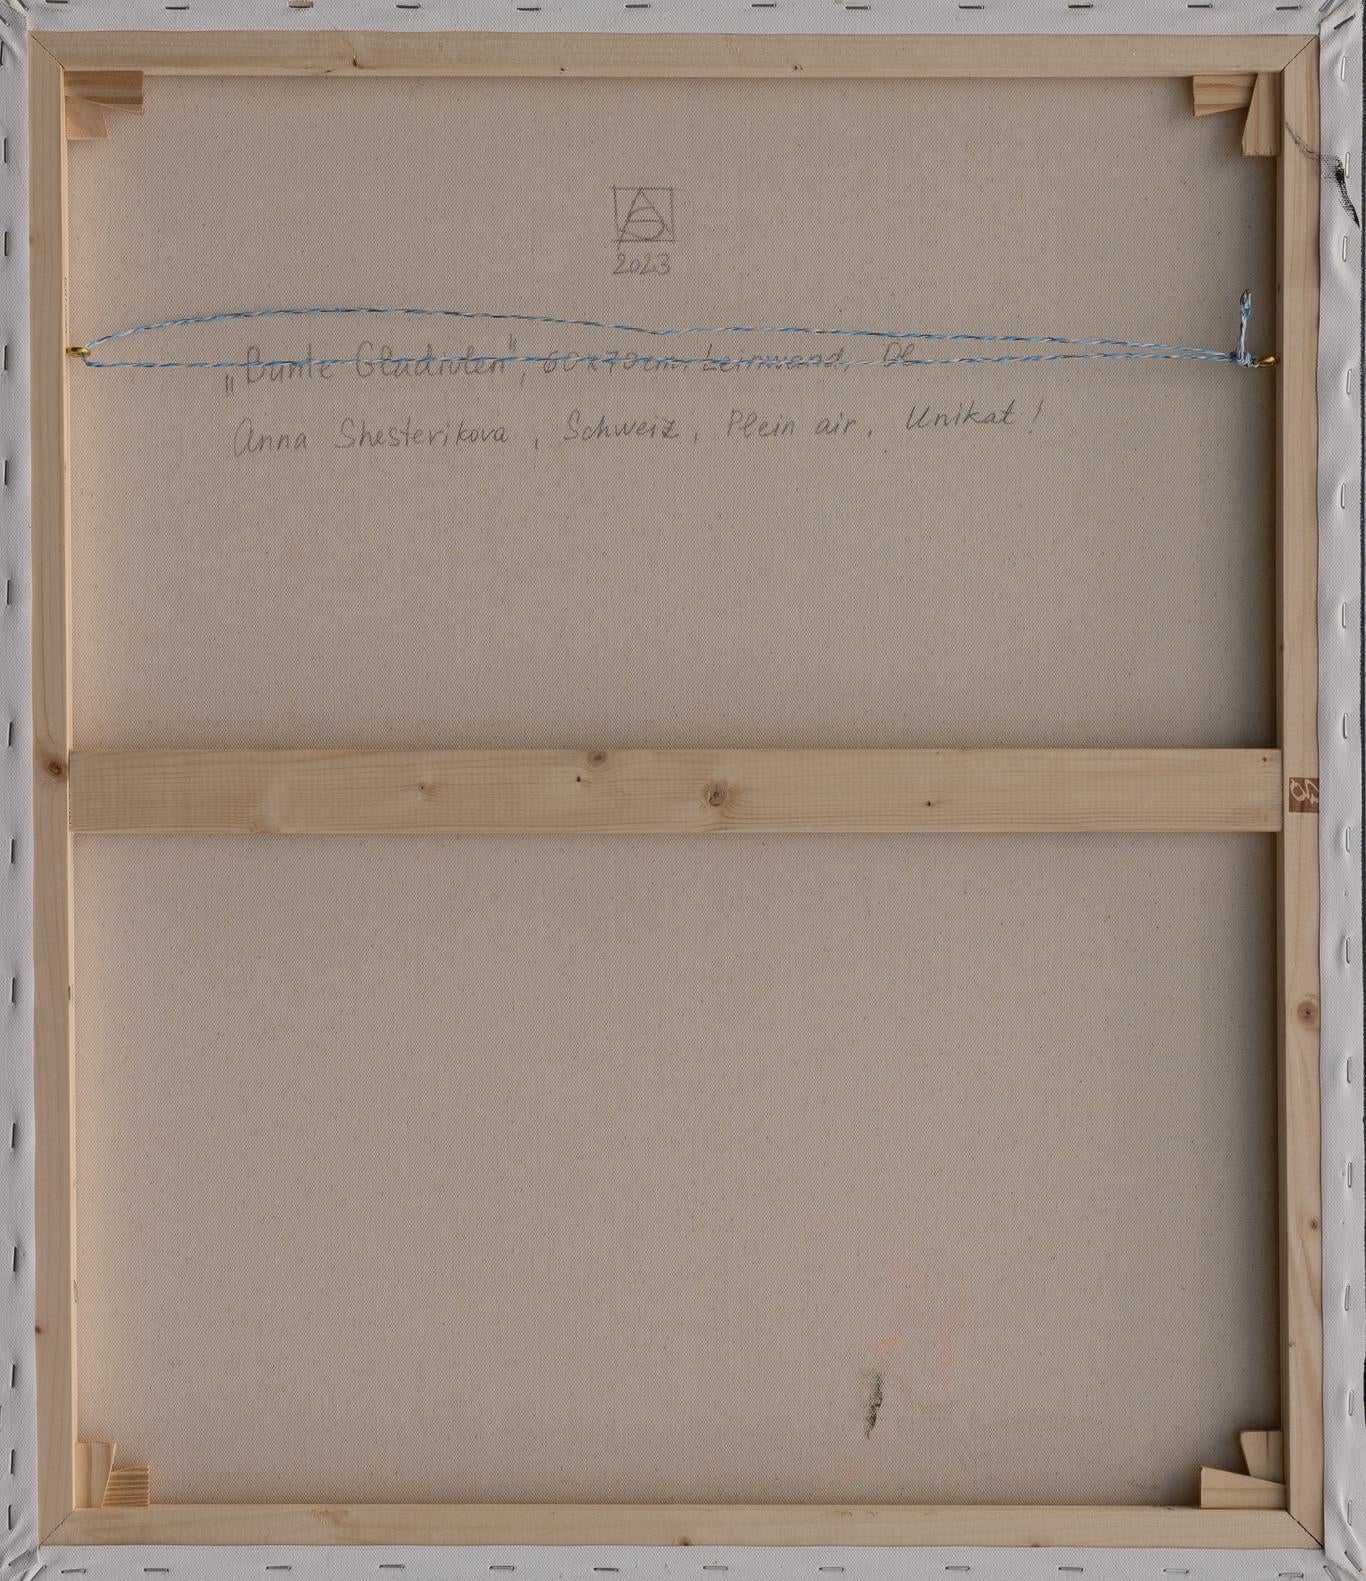 2023
„Bunte Gladiolen", 60x70cm, Leinwand, Öl
Anna Shesterikova, Schweiz, Plein air, Unikat!